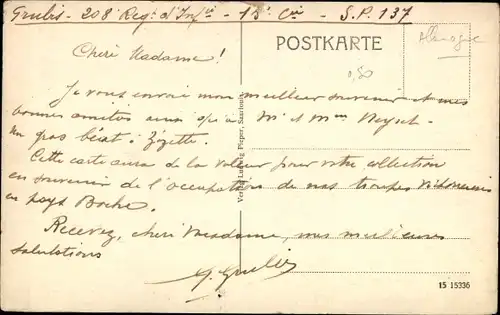 Grubis - 208 Reg. d'Infie - 15e Cie - S.P. 137
POSTKARTE
Allemagne
0,50
Cheré Madame!
Je vous envoie mon meilleur souvenir et mes
bonnes amitiés ainsi qu'à Mr et Mme
Un gros béat à Zézette.
Cette carte aura de la valeur pour votre collection
en souvenir de l'occupation de nos troupes victorieuses
en pays Boche.
Recevez, cheré Madame, mes meilleures
salutations
Verlag Ludwig Pieper, Saarlouis.
15 15336